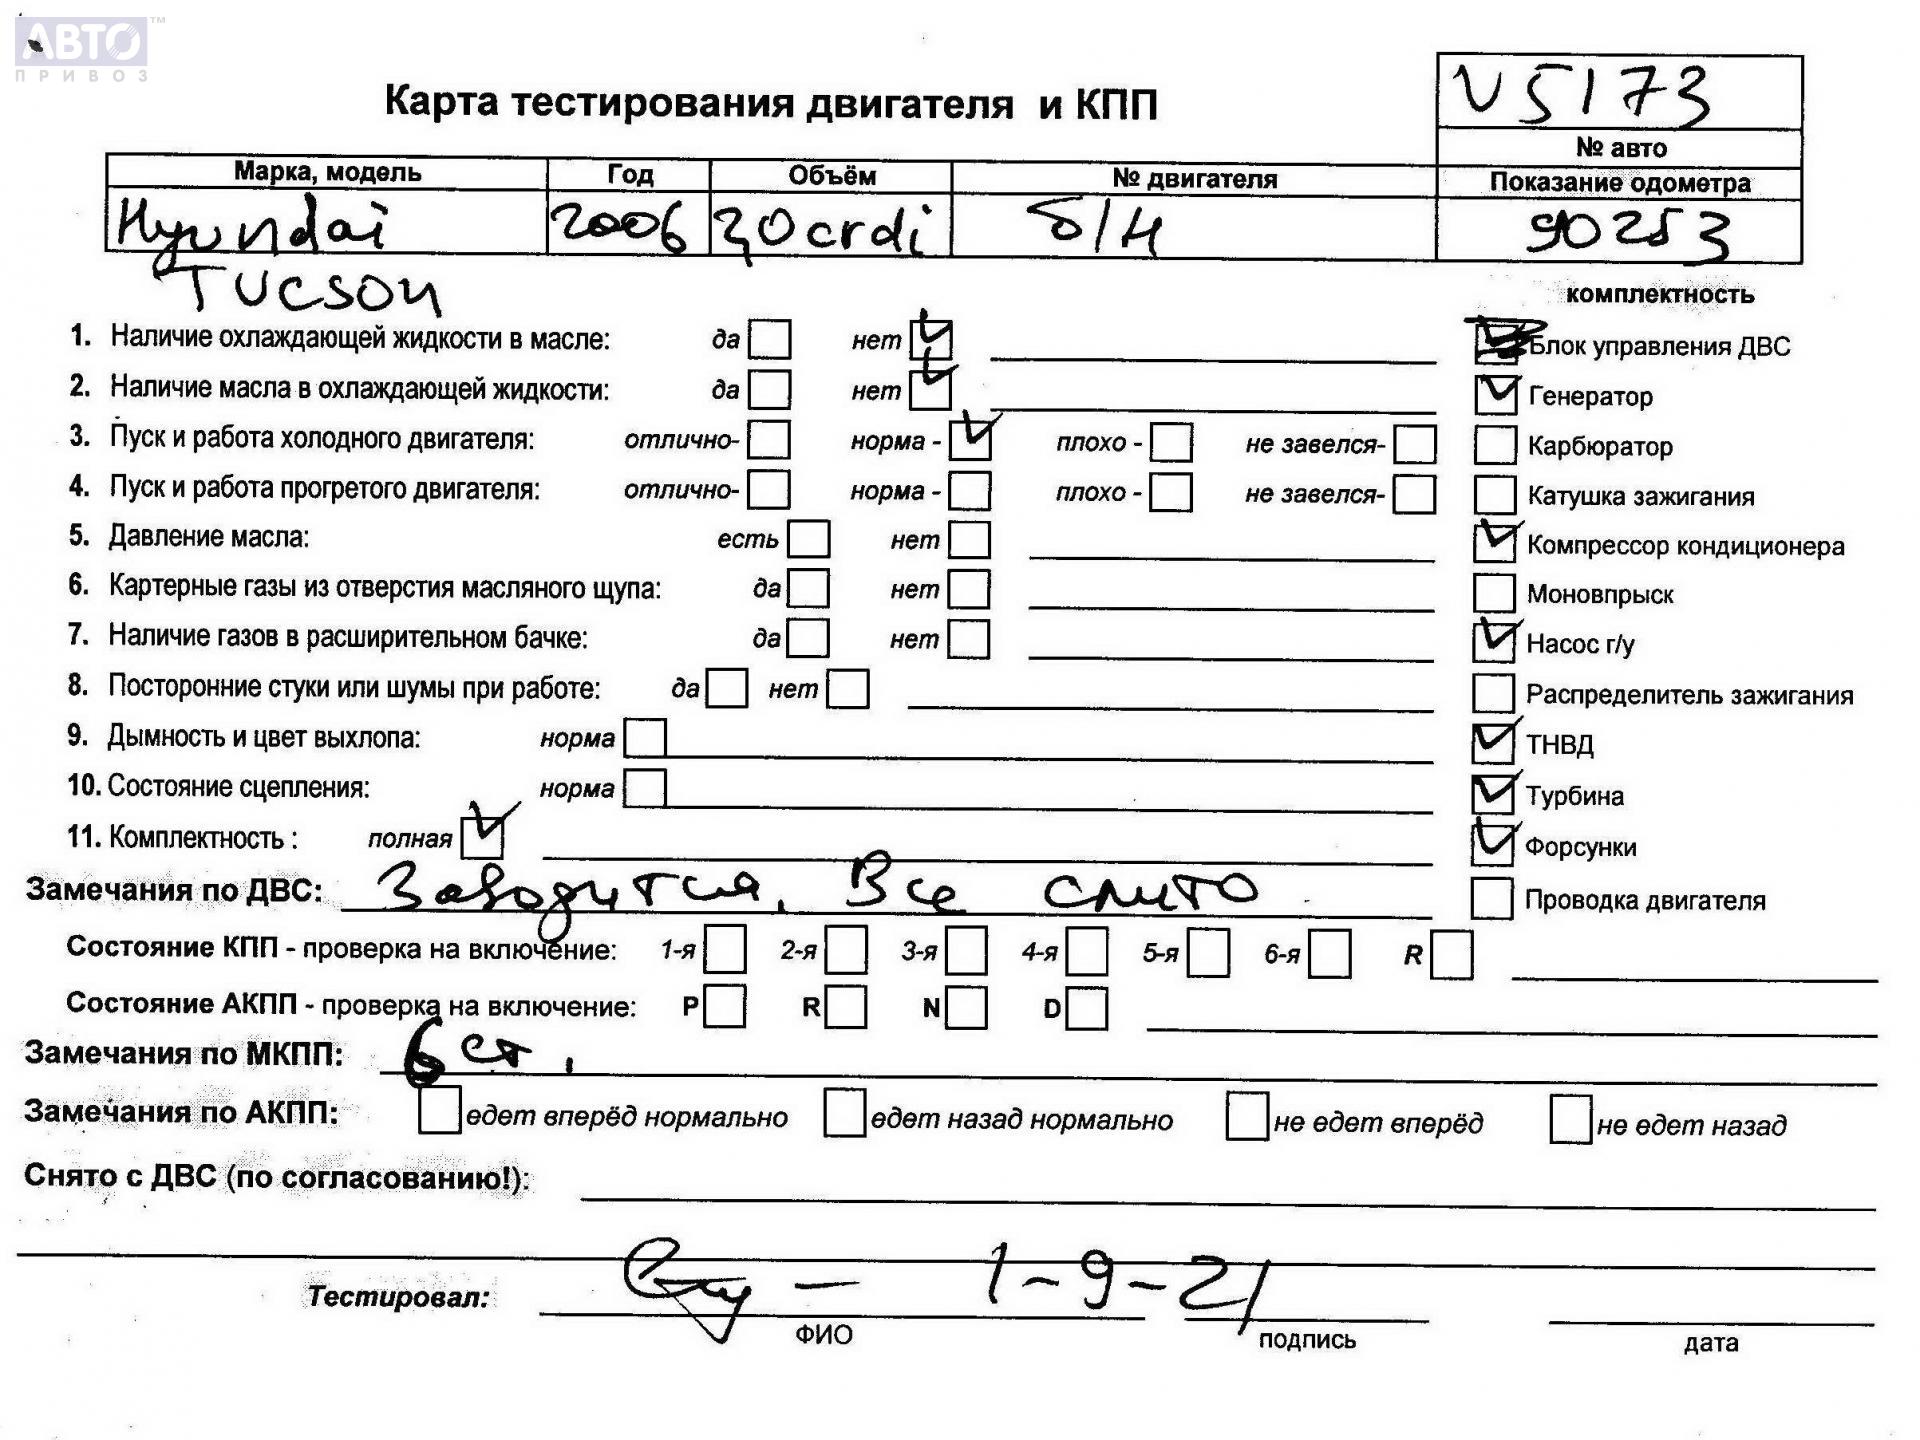 АВТО™
ПРИВОЗ
Карта тестирования двигателя и КПП
V5173
№ авто
Марка, модель Год Объём № двигателя Показание одометра
Hyundai 2006 2,0crdi б/н 90253
TUCSON
комплектность
1. Наличие охлаждающей жидкости в масле: да нет
Блок управления ДВС
2. Наличие масла в охлаждающей жидкости: да нет
Генератор
3. Пуск и работа холодного двигателя: отлично- норма - плохо - не завелся-
Карбюратор
4. Пуск и работа прогретого двигателя: отлично- норма - плохо - не завелся-
Катушка зажигания
5. Давление масла: есть нет
Компрессор кондиционера
6. Картерные газы из отверстия масляного щупа: да нет
Моновпрыск
7. Наличие газов в расширительном бачке: да нет
Насос г/у
8. Посторонние стуки или шумы при работе: да нет
Распределитель зажигания
9. Дымность и цвет выхлопа: норма
ТНВД
10. Состояние сцепления: норма
Турбина
11. Комплектность : полная
Форсунки
Замечания по ДВС: Заводится, Все слито
Проводка двигателя
Состояние КПП - проверка на включение: 1-я 2-я 3-я 4-я 5-я 6-я R
Состояние АКПП - проверка на включение: P R N D
Замечания по МКПП: 6 ст.
Замечания по АКПП: едет вперёд нормально едет назад нормально не едет вперёд не едет назад
Снято с ДВС (по согласованию!):
Тестировал: – 1-9-21
ФИО подпись дата